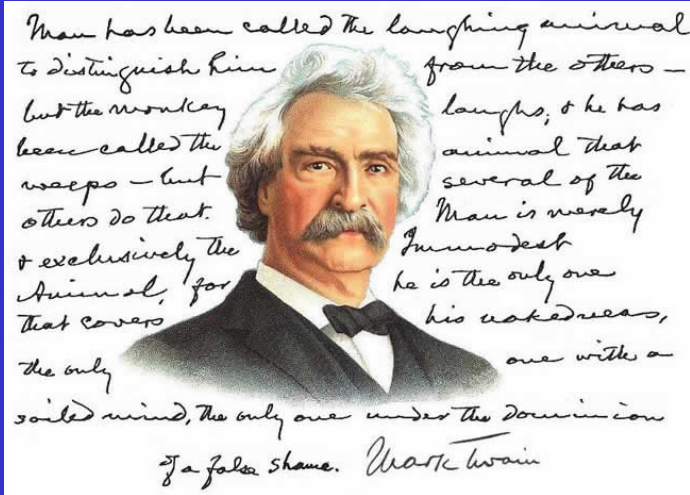 Man has been called the laughing animal
to distinguish him from the others –
but the monkey laughs; & he has
been called the animal that
weeps – but several of the
others do that. Man is merely
& exclusively the Immodest
Animal, for he is the only one
that covers his nakedness,
the only one with a
soiled mind, the only one under the dominion
of a false shame. Mark Twain